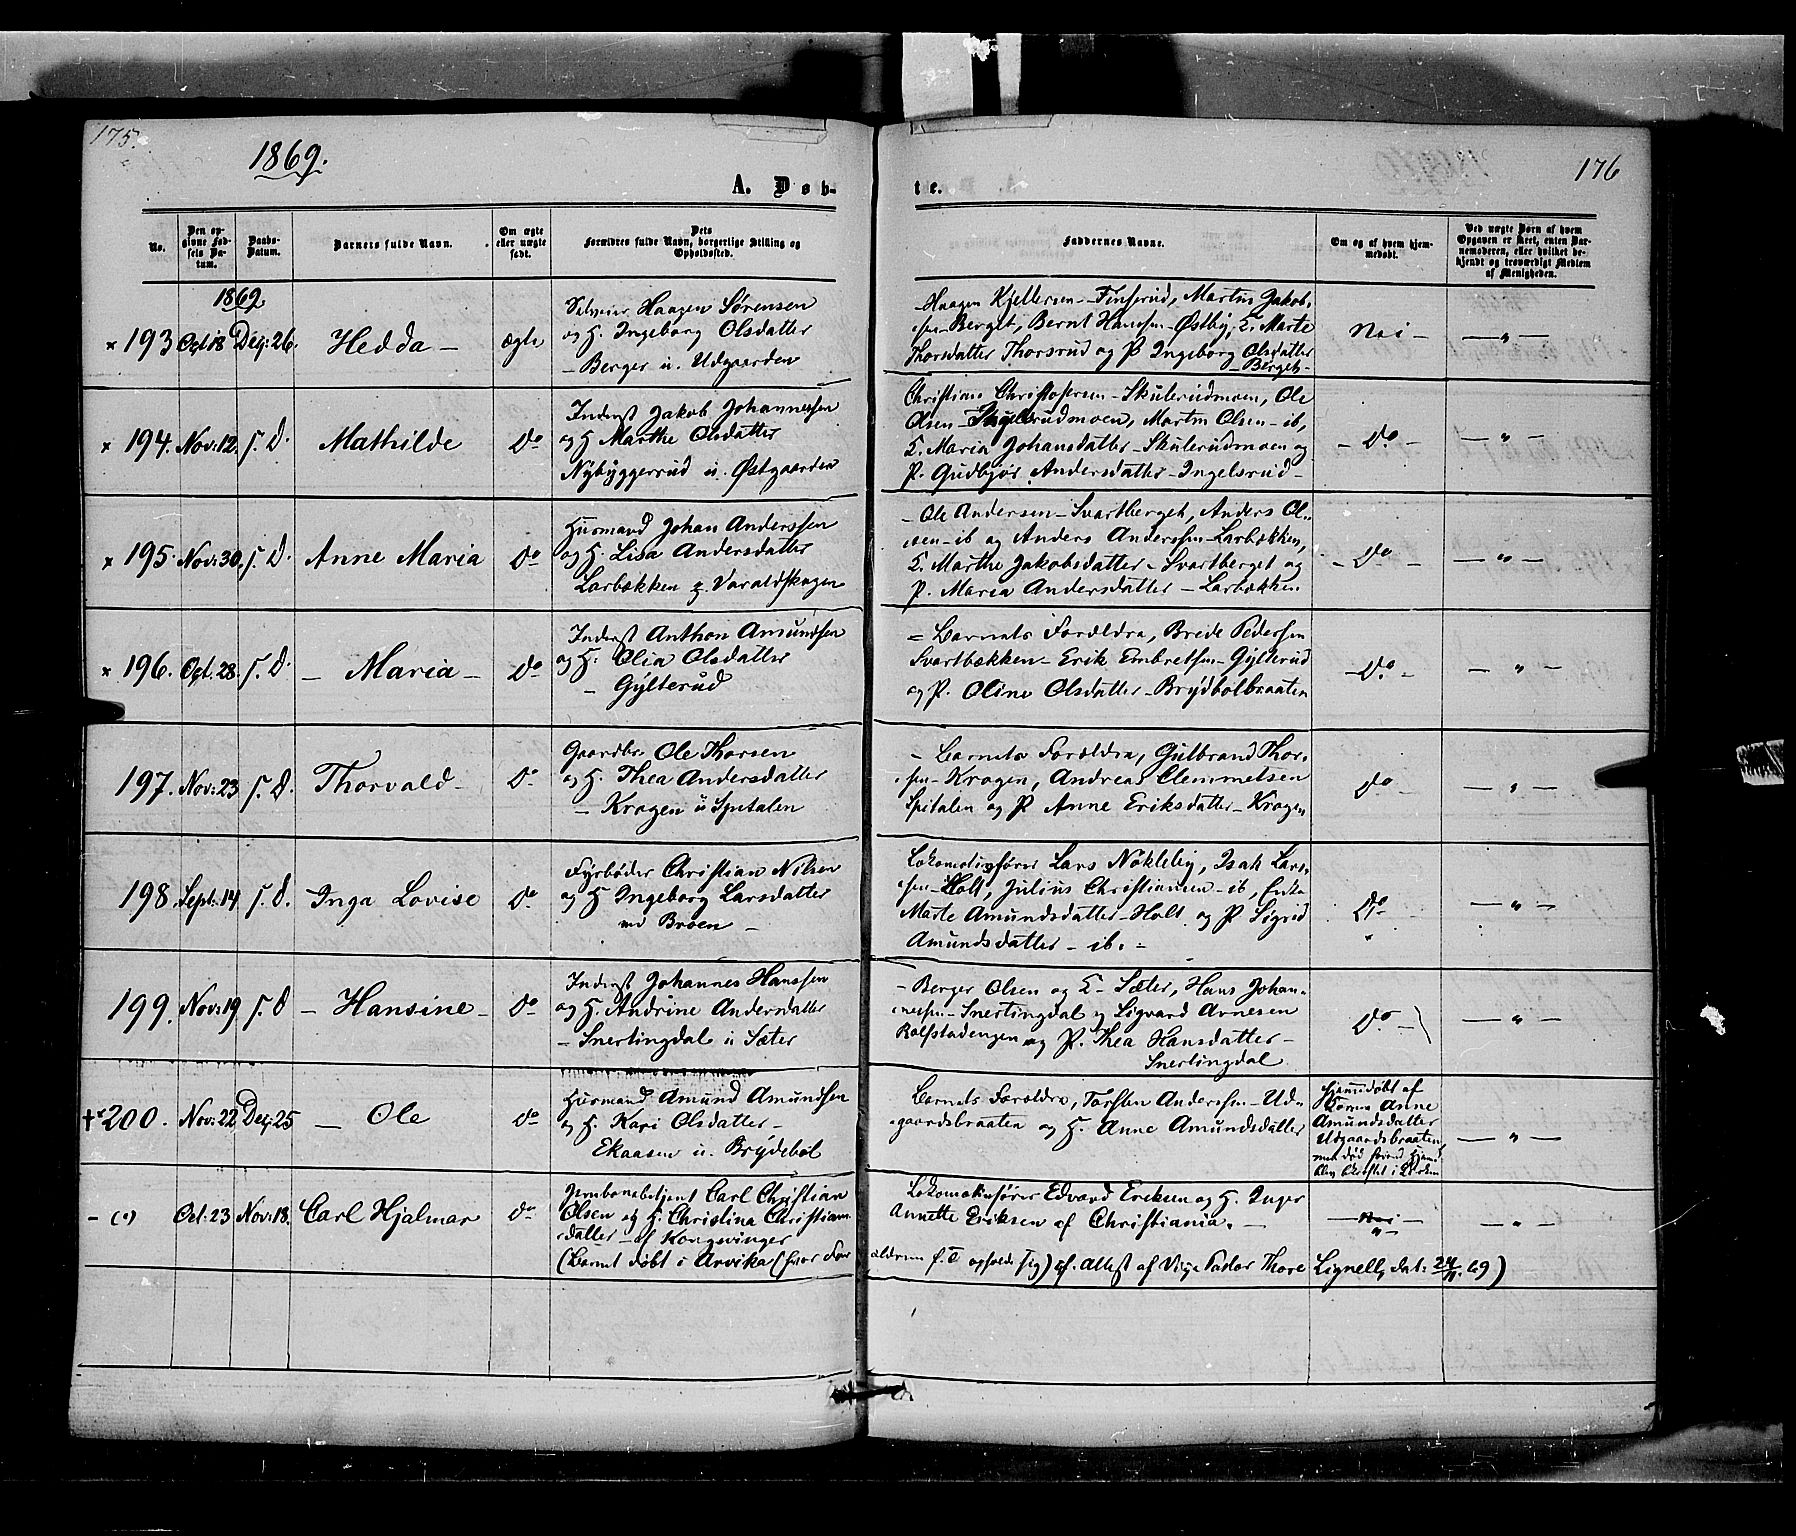 175.
1869.
A. Døb-
No.
Den opgivne Fødsels Datum.
Daabs-Datum.
Barnets fulde Navn.
Om ægte eller uægte født.
Dets Forældres fulde Navn, borgerlige Stilling og Opholdssted.
1869
× 193 Oct: 18 Dec: 26. Hedda – ægte
Selveier Haagen Sørensen
og H. Ingeborg Olsdatter
– Berger u. Udgaarden
× 194. Nov: 12. s. D. Mathilde Do
Inderst Jakob Johannessen
og H Marthe Olsdatter
Nybyggerrud u. Østgaarden
× 195. Nov: 30. s. D. Anne Maria Do
Husmand Johan Anderssen
og H. Lisa Andersdatter
Larbækken p. Varaldskogen
× 196. Oct. 28. s. D. – Maria – Do
Inderst Anthon Amundsen
og H. Olia Olsdatter
– Gylterud
197. Nov: 23 s. D. Thorvald – Do
Gaardbr. Ole Thorsen
og H. Thea Andersdatter
– Kragen u Spitalen
198 Sept: 14 s. D. Inga Lovise Do
Fyrbøder Christian Nilsen
og H Ingeborg Larsdatter
ved Broen –
199. Nov: 19 s. D – Hansine – Do
Inderst Johannes Hanssen
og H. Andrine Andersdatter
– Snertingdal u Sæter
†× 200. Nov: 22 Dec: 25 – Ole do
Husmand Amund Amundsen
og H. Kari Olsdatter –
Ekaasen u. Brydebøl
– (") Oct. 23 Nov: 18. Carl Hjalmar do
Jernbanebetjent Carl Christian
Olsen og H. Christina Christians
datter – af Kongsvinger
(Barnet døbt i Arvika (hvor For
176
te.
Faddernes Navne.
Om og af hvem hjemmedøbt.
Ved uægte Børn af hvem Opgaven er skeet, enten Barnemoderen, eller hvilket bekjendt og troværdigt Medlem af Menigheden.
– Haagen Kjellersen – Finserud, Martin Jakob-
sen – Berget, Bernt Hanssen – Østby, E. Marte
Thorsdatter Thorsrud og P Ingeborg Olsdatter
– Berget –
Nei – – " –
Christian Christofersen – Skulerudmoen, Ole
Olsen – Ingelsrudmoen, Martin Olsen – ib,
E. Maria Johansdatter – Skulerudmoen og
P. Gudbjør Andersdatter – Ingelsrud –
– Do – – " –
– Ole Andersen – Svartberget, Anders Ol-
sen – ib og Anders Anderssen – Larbækken,
E. Marthe Jakobsdatter – Svartberget og
P. Maria Andersdatter – Larbækken
– Do – – " –
– Barnets Forældre, Brede Pedersen
Svartbækken – Erik Embretsen – Gylterud
og P. Oline Olsdatter – Brydbølbraaten
– Do – – " –
– Barnets Forældre, Gulbrand Thor-
sen – Kragen, Andreas Clemmetsen
Spitalen og P Anne Eriksdatter – Kragen
do – " –
Lokomotivfører Lars Nøkleby, Isak Lars-
sen – Holt, Julius Christiansen – ib, Enke
Marte Amundsdatter – Holt og P Sigrid
Amundsdatter – ib. –
Do – " –
– Berger Olsen og E – Sæter, Hans Johan-
nessen – Snertingdal og Sigvard Arnesen
Rolfstadengen og P. Thea Hansdatter –
Snertingdal
Do – – " –
Barnets Forældre, Torsten Anderssen – Ud-
gaardsbraaten og H. Anne Amundsdatter
Hjemmedøbt af
Anne
Amundsdatter
Udgaardsbraaten
– " –
Lokomotivfører Edvard Eriksen og H. Inger
Annette Eriksen af Christiania. –
– Nei –
"
– " –
ældrene p. T opholdt sig) cf. Attest af Vice Pastor Thore Lignell, dat: 24/11. 69)